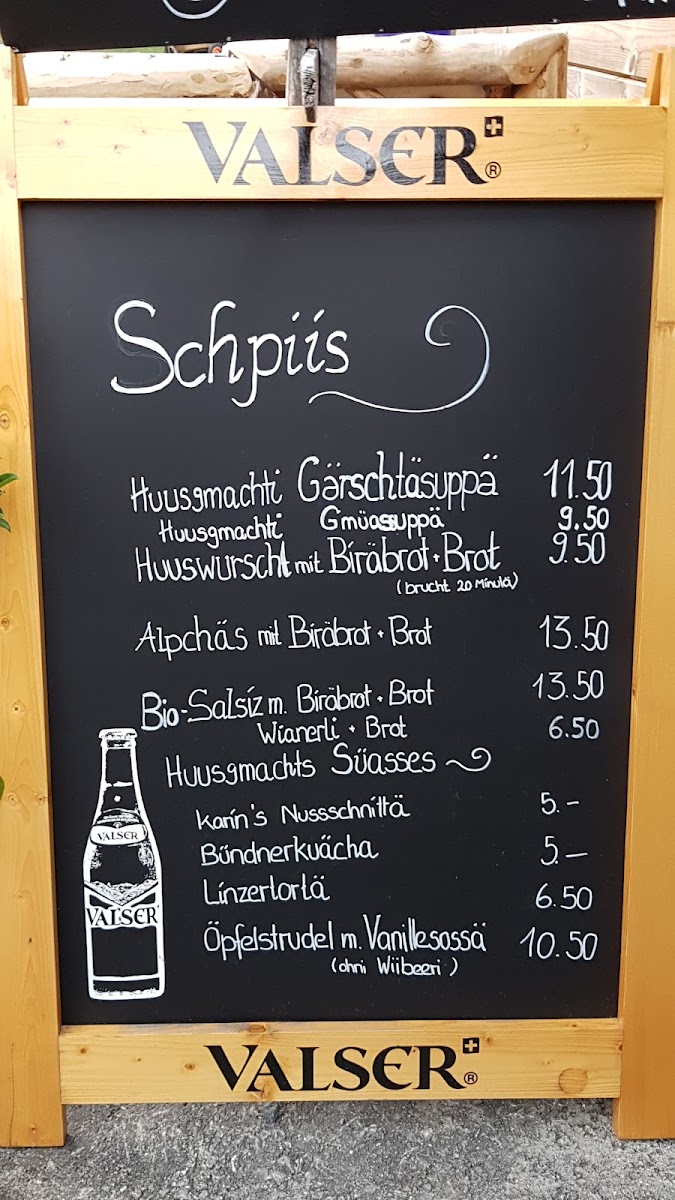 VALSER®
Schpiis
Huusgmachti Gärschtäsuppä 11.50
Huusgmachti Gmüassuppä 9.50
Huuswurscht mit Biräbrot + Brot 9.50
(brucht 20 Minutä)
Alpchäs mit Biräbrot + Brot 13.50
Bio-Salsiz m. Biräbrot + Brot 13.50
Wianerli + Brot 6.50
Huusgmachts Süasses
Karin's Nussschnittä 5.-
Bündnerkuächa 5.-
Linzertortä 6.50
Öpfelstrudel m. Vanillesossä 10.50
(ohni Wiibeeri)
VALSER
VALSER
VALSER®